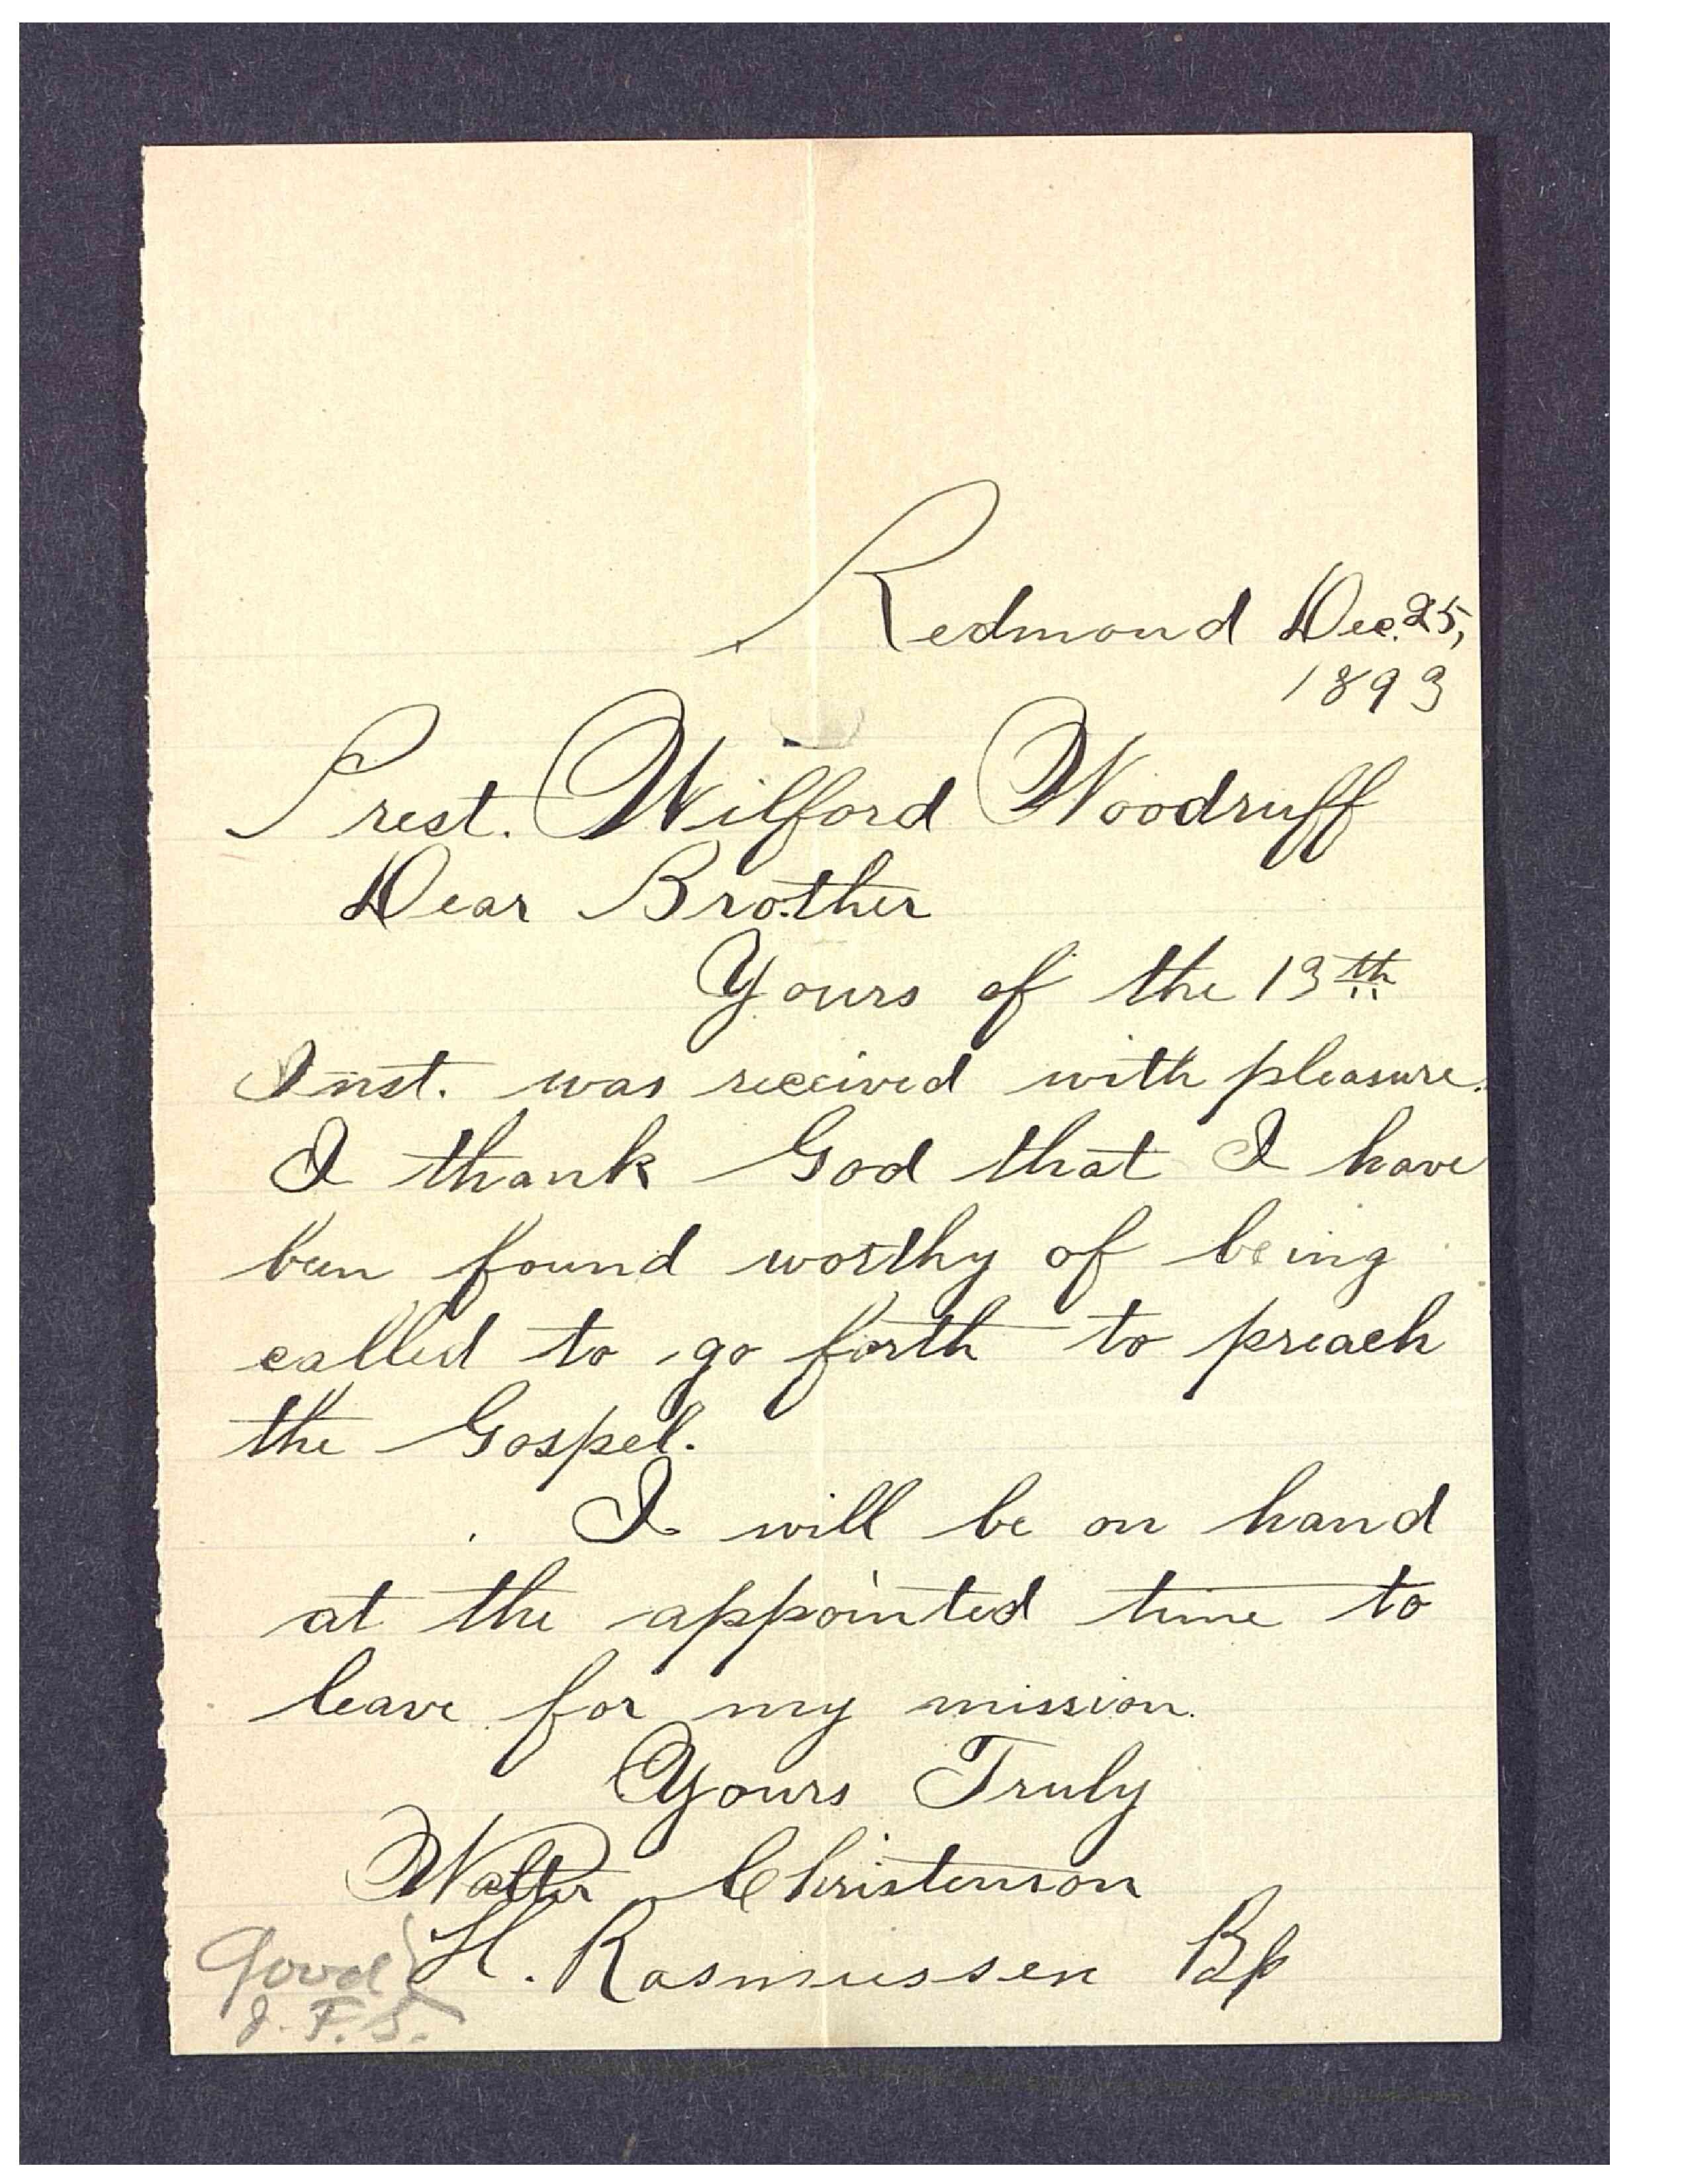 Redmond Dec. 25,
1893
Prest. Wilford Woodruff
Dear Brother
Yours of the 13th
Inst. was received with pleasure.
I thank God that I have
been found worthy of being
called to go forth to preach
the Gospel.
I will be on hand
at the appointed time to
leave for my mission.
Yours Truly
Walter Christenson
H. Rasmussen Bp
Good
J. F. S.